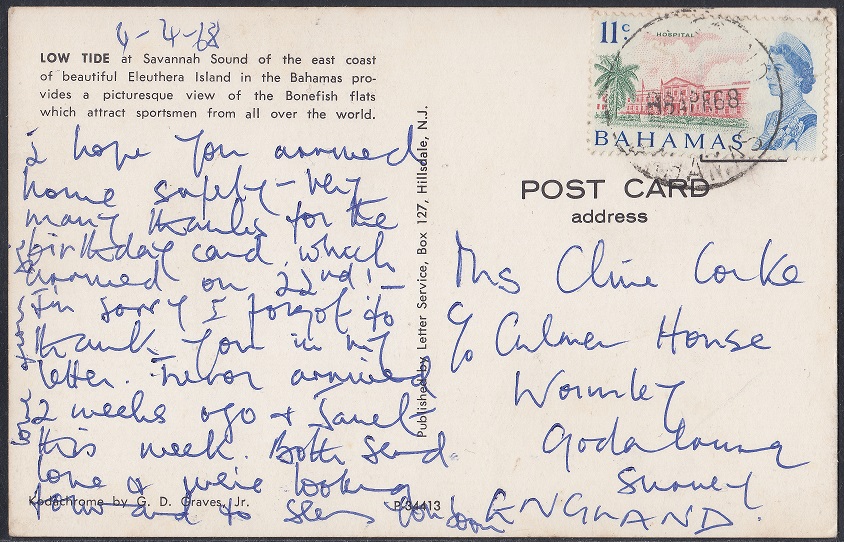 4-4-68
LOW TIDE at Savannah Sound of the east coast
of beautiful Eleuthera Island in the Bahamas pro-
vides a picturesque view of the Bonefish flats
which attract sportsmen from all over the world.
I hope you arrived
home safely - very
many thanks for the
birthday card which
arrived on 22nd! -
I'm sorry I forgot to
thank you in my
letter. Trevor arrived
2 weeks ago & Janet
this week. Both send
love & we're looking
forward to seeing you soon
Kodachrome by G. D. Graves, Jr.
P-34413
Published by Letter Service, Box 127, Hillsdale, N.J.
11c
HOSPITAL
BAHAMAS
APR 68
POST CARD
address
Mrs Clive Corke
c/o Culmer House
Wormley
Godalming
Surrey
ENGLAND.